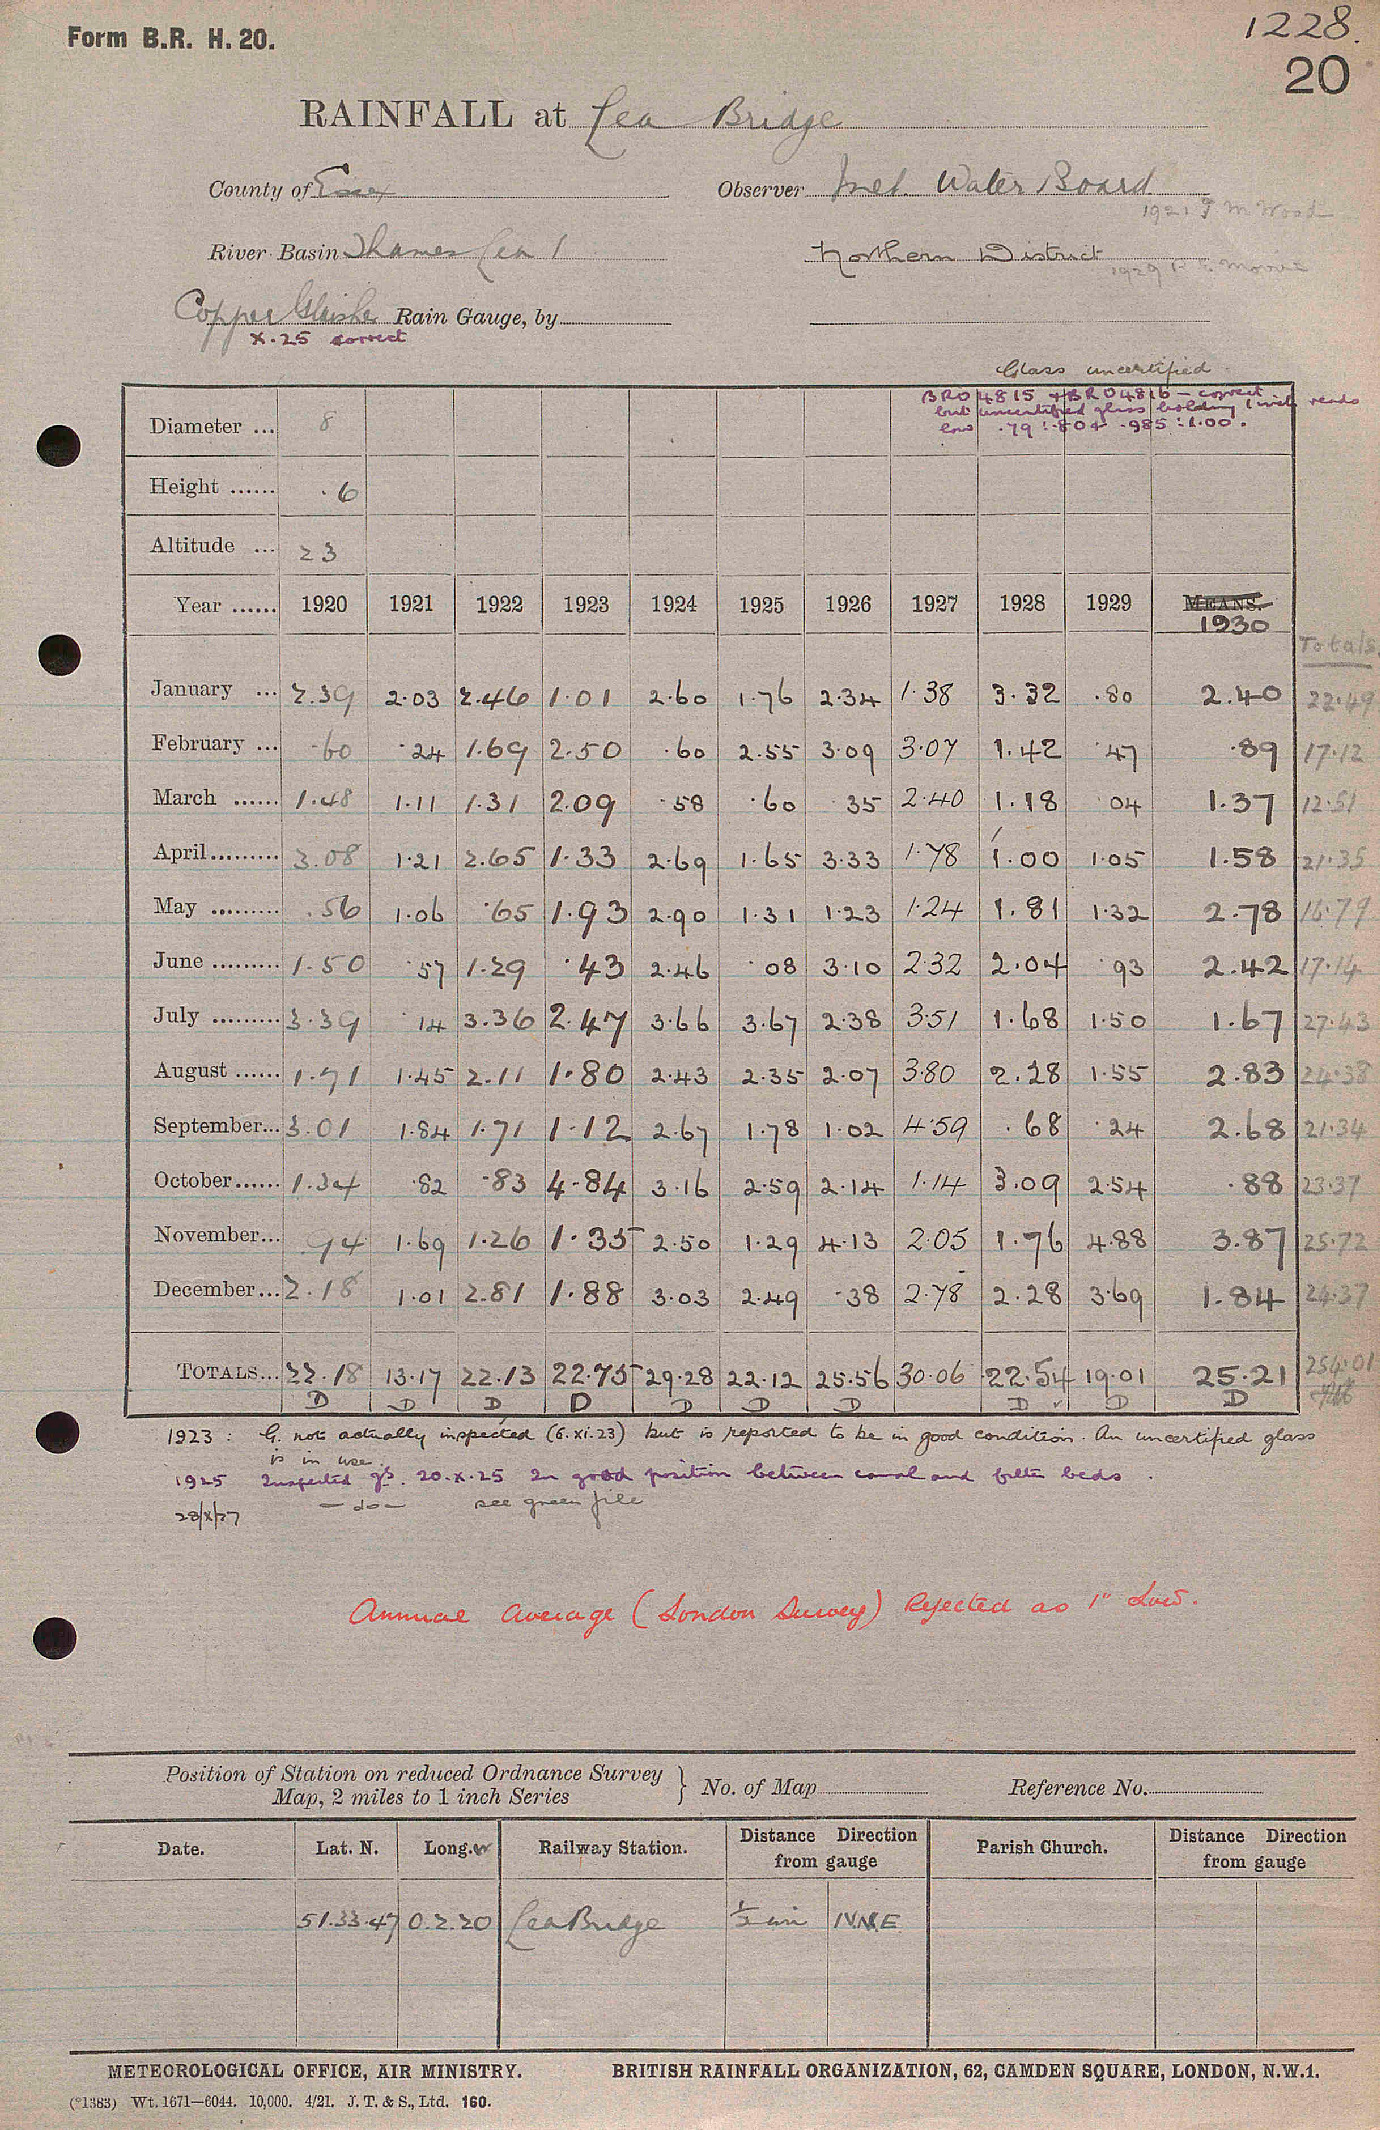 Form B.R. H. 20.
1228.
20
RAINFALL at Lea Bridge
County of Essex
Observer Met. Water Board
1921 J M Wood
River Basin Thames Lea 1
Northern District
1929
Copper Glaisher Rain Gauge, by
X.25 correct
Glass uncertified
BRO 4815 + BRO 4816 - correct
but uncertified glass holding 1 inch reads
low .79 : .804 .985 : 1.00.
Diameter ... 8
Height ...... .6
Altitude ... 23
Year ...... 1920 1921 1922 1923 1924 1925 1926 1927 1928 1929 MEANS. 1930
Totals
January ... 2.39 2.03 2.46 1.01 2.60 1.76 2.34 1.38 3.32 .80 2.40 22.49
February ... .60 .24 1.69 2.50 .60 2.55 3.09 3.07 1.42 .47 .89 17.12
March ...... 1.48 1.11 1.31 2.09 .58 .60 .35 2.40 1.18 .04 1.37 12.51
April......... 3.08 1.21 2.65 1.33 2.69 1.65 3.33 1.78 1.00 1.05 1.58 21.35
May ......... .56 1.06 .65 1.93 2.90 1.31 1.23 1.24 1.81 1.32 2.78 16.79
June ......... 1.50 .57 1.29 .43 2.46 .08 3.10 2.32 2.04 .93 2.42 17.14
July ......... 3.39 .14 3.36 2.47 3.66 3.67 2.38 3.51 1.68 1.50 1.67 27.43
August ...... 1.71 1.45 2.11 1.80 2.43 2.35 2.07 3.80 2.28 1.55 2.83 24.38
September... 3.01 1.84 1.71 1.12 2.67 1.78 1.02 4.59 .68 .24 2.68 21.34
October...... 1.34 .82 .83 4.84 3.16 2.59 2.14 1.14 3.09 2.54 .88 23.37
November... .94 1.69 1.26 1.35 2.50 1.29 4.13 2.05 1.76 4.88 3.87 25.72
December... 2.18 1.01 2.81 1.88 3.03 2.49 .38 2.78 2.28 3.69 1.84 24.37
TOTALS... 22.18 13.17 22.13 22.75 29.28 22.12 25.56 30.06 22.54 19.01 25.21 254.01
D D D D D D D D D D
1923 : G. not actually inspected (6.xi.23) but is reported to be in good condition. An uncertified glass
is in use.
1925 Inspected gs. 20.x.25 In good position between canal and filter beds.
28/x/27 - do - see green file
Annual average (London Survey) Rejected as 1" Low.
Position of Station on reduced Ordnance Survey
Map, 2 miles to 1 inch Series } No. of Map Reference No.
Date. Lat. N. Long. W Railway Station. Distance Direction from gauge Parish Church. Distance Direction from gauge
51.33.47 0.2.20 Lea Bridge 1/2 mi NNE
METEOROLOGICAL OFFICE, AIR MINISTRY. BRITISH RAINFALL ORGANIZATION, 62, CAMDEN SQUARE, LONDON, N.W.1.
(*1383) Wt. 1671—6044. 10,000. 4/21. J. T. & S., Ltd. 160.